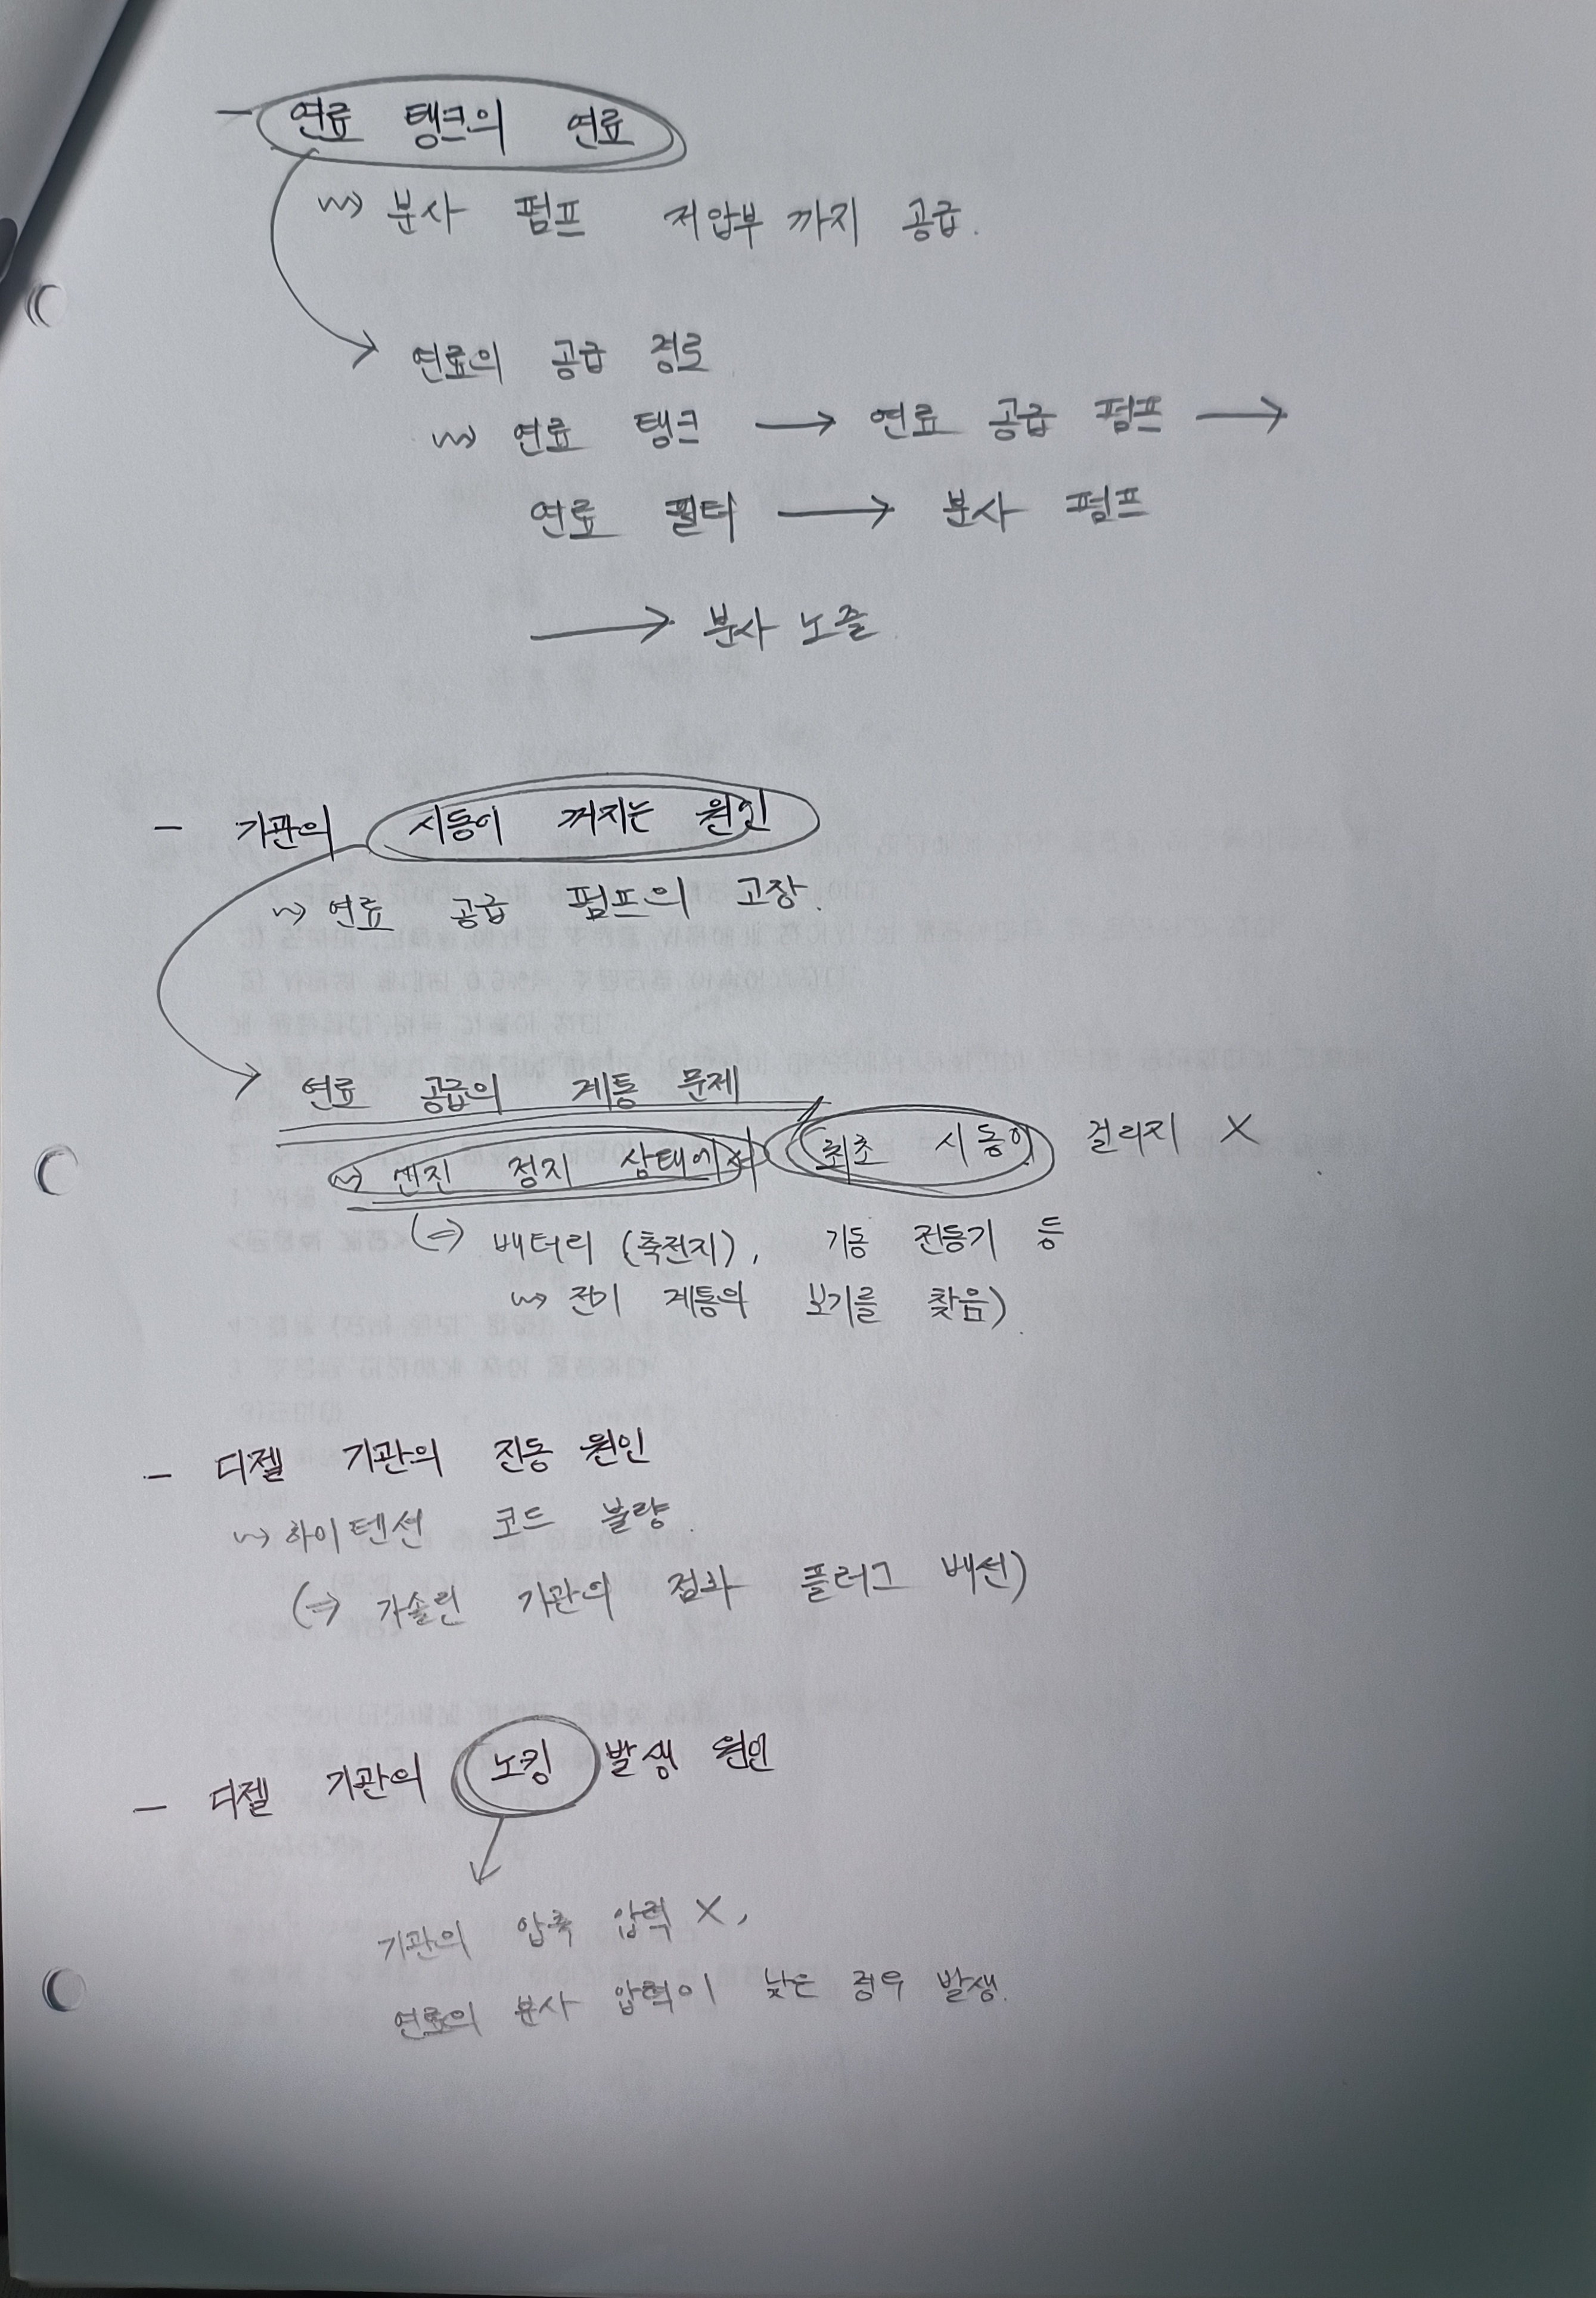 - 연료 탱크의 연료
↝ 분사 펌프 저압부 까지 공급.
연료의 공급 경로
↝ 연료 탱크 → 연료 공급 펌프 →
연료 필터 → 분사 펌프
→ 분사 노즐
- 기관의 시동이 꺼지는 원인
↝ 연료 공급 펌프의 고장.
연료 공급의 계통 문제
↝ 엔진 정지 상태에서 최초 시동이 걸리지 X
(⇒ 배터리 (축전지), 기동 전동기 등
↝ 전기 계통의 보기를 찾음).
- 디젤 기관의 진동 원인
↝ 하이텐션 코드 불량.
(⇒ 가솔린 기관의 점화 플러그 배선)
- 디젤 기관의 노킹 발생 원인
기관의 압축 압력 X,
연료의 분사 압력이 낮은 경우 발생.